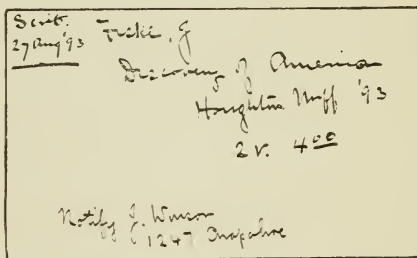 Scrib.
27 Aug '93
Fiske, J
Discovery of America
Houghton Miff '93
2 v. 4.00
Notify J. Winsor
1247 Arapahoe